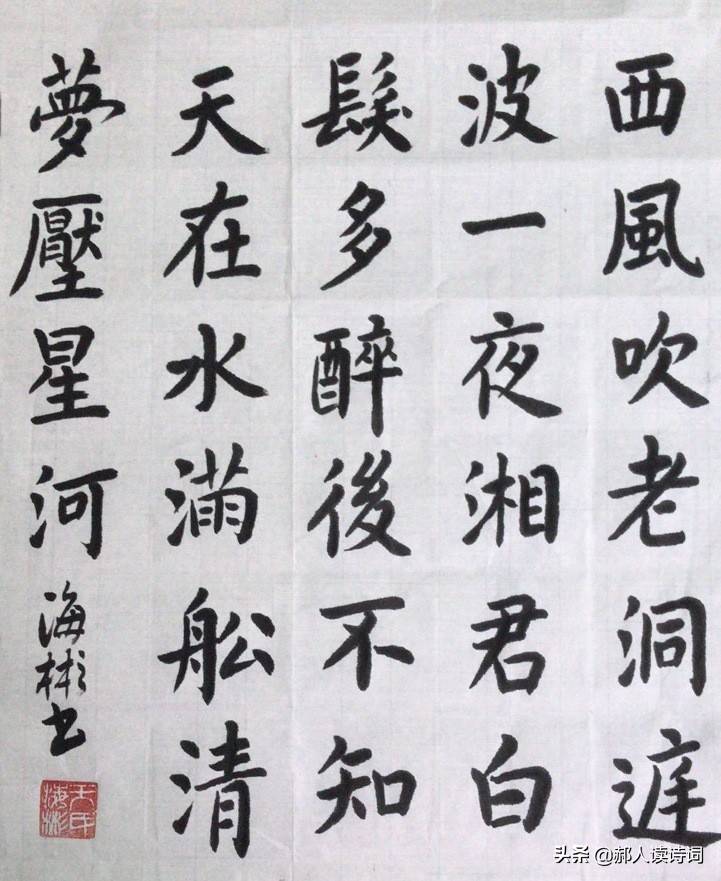 西風吹老洞庭
波一夜湘君白
髮多醉後不知
天在水滿舩清
夢壓星河
海彬书
头条 @郝人读诗词